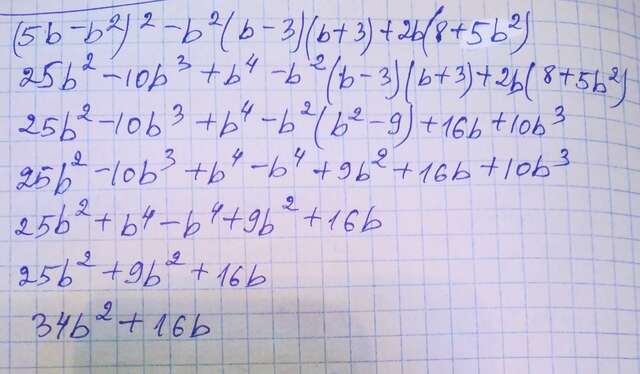 (5b-b²)²-b²(b-3)(b+3)+2b(8+5b²)
25b²-10b³+b⁴-b²(b-3)(b+3)+2b(8+5b²)
25b²-10b³+b⁴-b²(b²-9)+16b+10b³
25b²-10b³+b⁴-b⁴+9b²+16b+10b³
25b²+b⁴-b⁴+9b²+16b
25b²+9b²+16b
34b²+16b